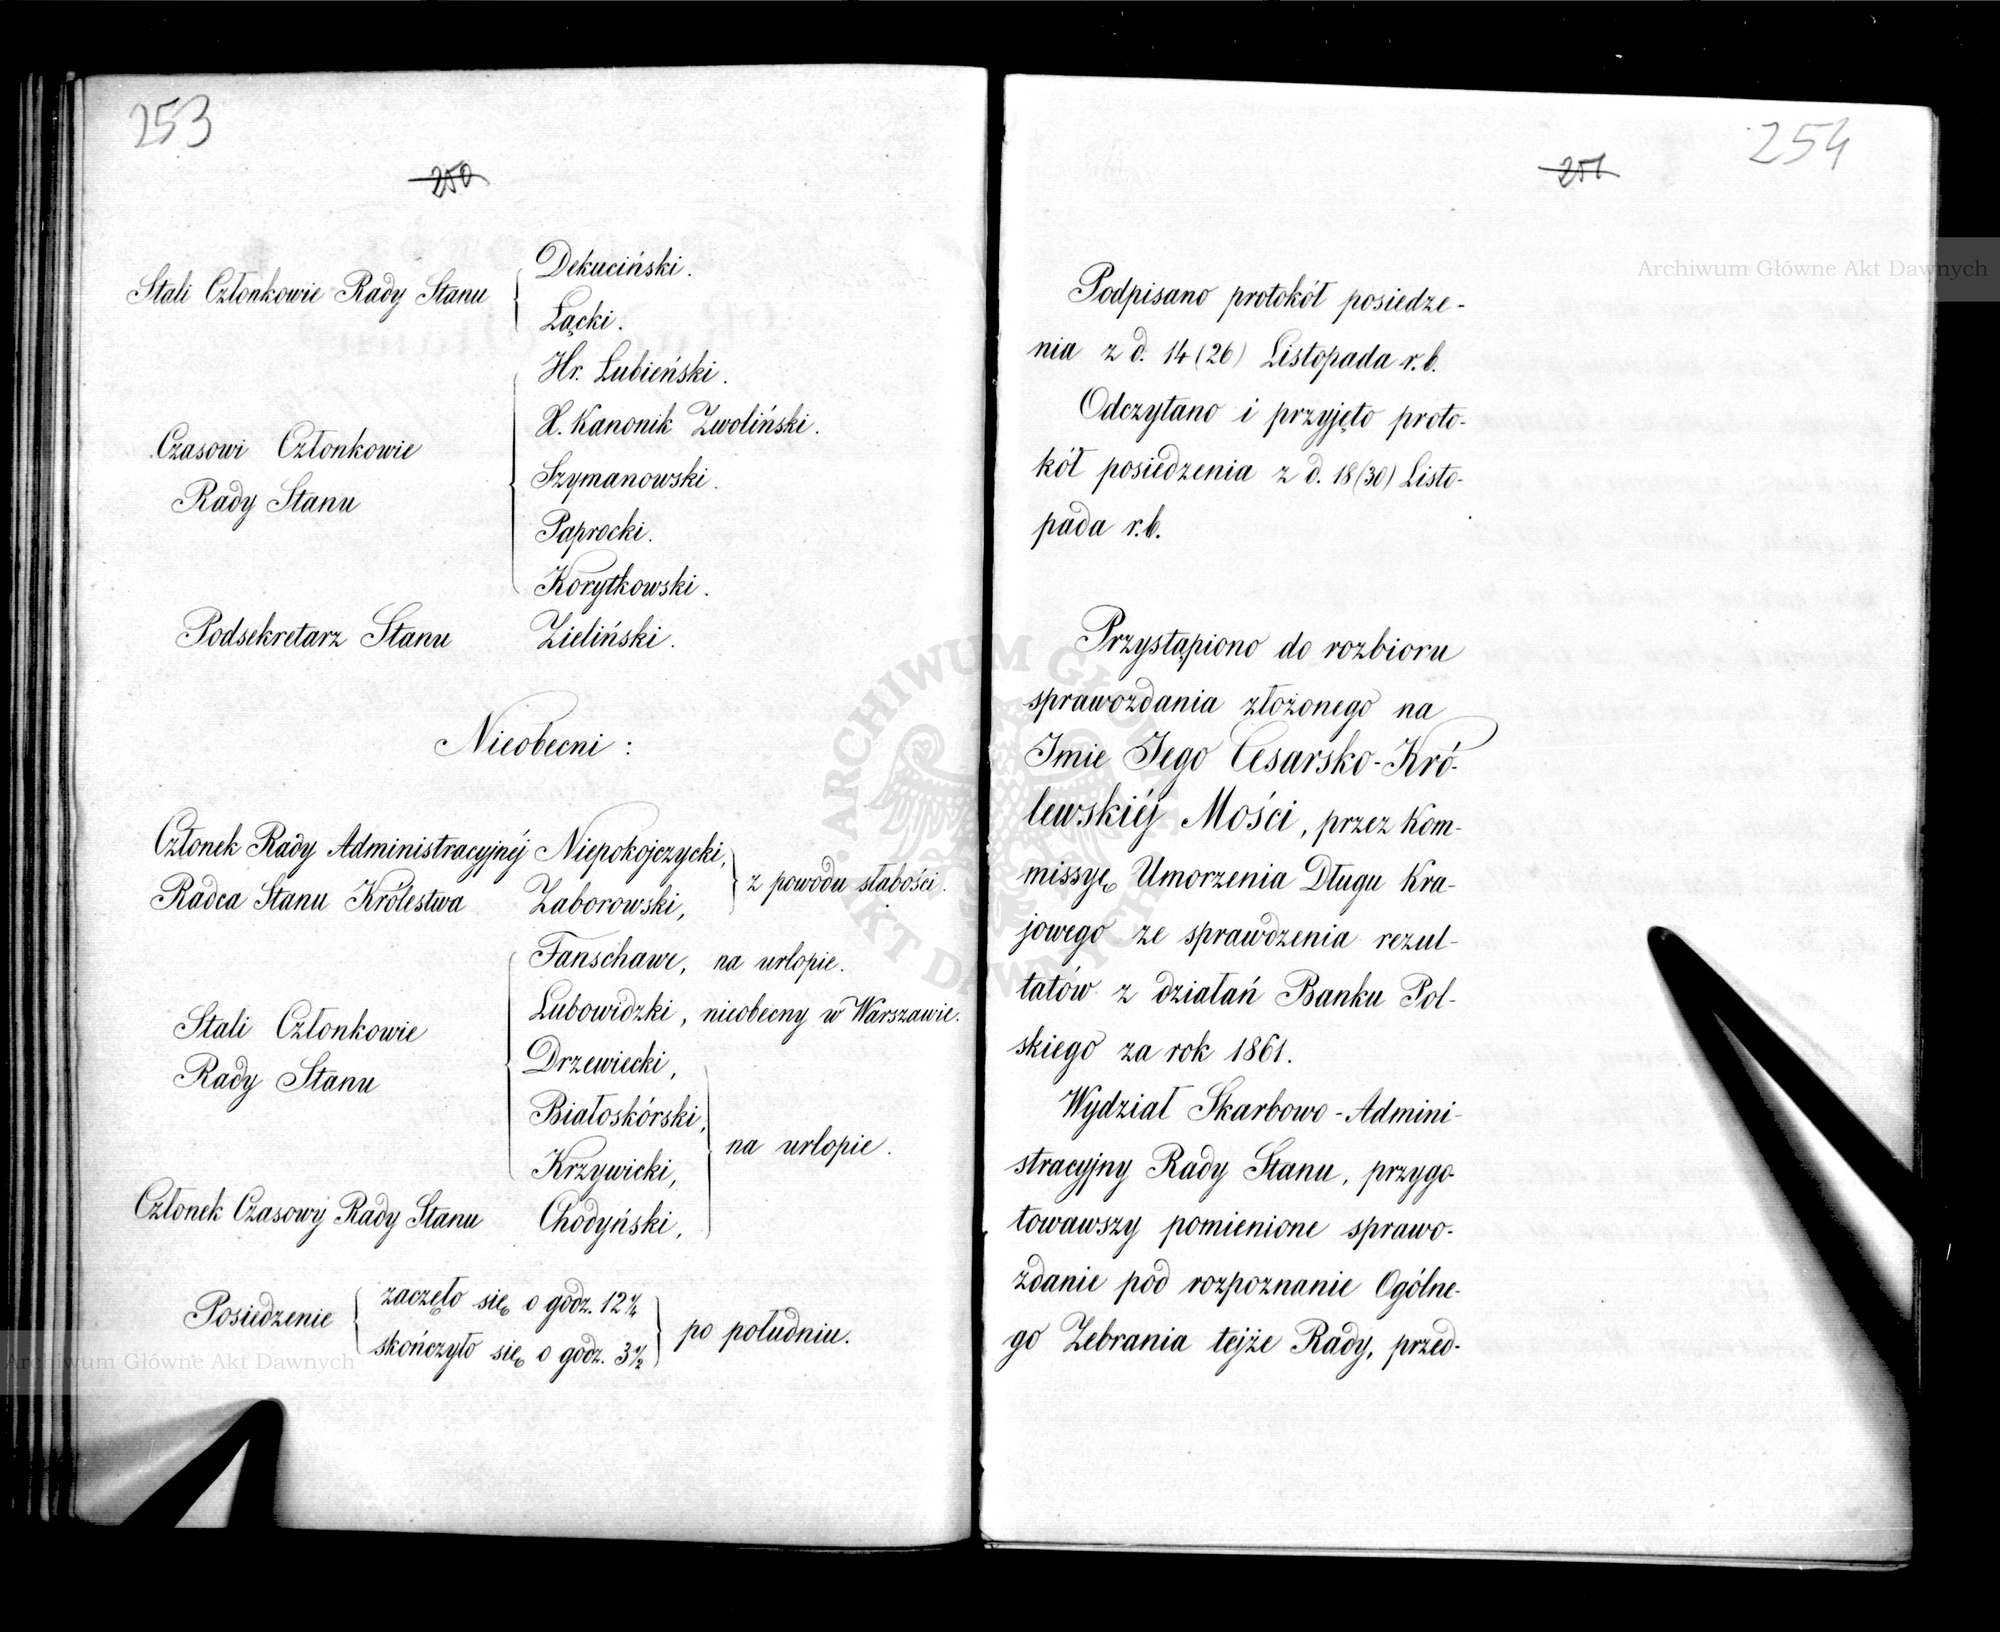 253
250
Stali Członkowie Rady Stanu
Dekuciński.
Łącki.
Czasowi Członkowie
Rady Stanu
Hr. Łubieński.
X. Kanonik Zwoliński.
Szymanowski.
Paprocki.
Korytkowski.
Podsekretarz Stanu Zieliński.
Nieobecni:
Członek Rady Administracyjnéj Niepokojczycki,
Radca Stanu Królestwa Zaborowski,
z powodu słabości.
Stali Członkowie
Rady Stanu
Fanschawe, na urlopie.
Lubowidzki, nieobecny w Warszawie.
Drzewiecki,
Białoskórski,
Krzywicki,
Członek Czasowy Rady Stanu Chodyński,
na urlopie.
Posiedzenie
zaczęło się o godz. 12¼
skończyło się o godz. 3½
po południu.
254
251
Podpisano protokół posiedze-
nia z d. 14 (26) Listopada r.b.
Odczytano i przyjęto proto-
kół posiedzenia z d. 18 (30) Listo-
pada r.b.
Przystąpiono do rozbioru
sprawozdania złożonego na
Imie Jego Cesarsko-Kró-
lewskiéj Mości, przez Kom-
missyę Umorzenia Długu Kra-
jowego ze sprawdzenia rezul-
tatów z działań Banku Pol-
skiego za rok 1861.
Wydział Skarbowo-Admini-
stracyjny Rady Stanu, przygo-
towawszy pomienione sprawo-
zdanie pod rozpoznanie Ogólne-
go Zebrania tejże Rady, przed-
Archiwum Główne Akt Dawnych
Archiwum Główne Akt Dawnych
ARCHIWUM GŁÓWNE AKT DAWNYCH